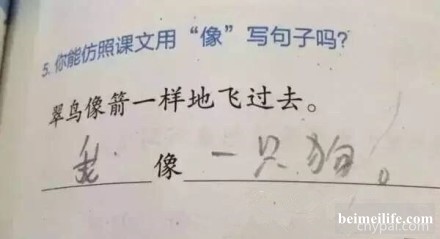 5. 你能仿照课文用“像”写句子吗?
翠鸟像箭一样地飞过去。
我像一只狗。
cnypai.com
beimeilife.com